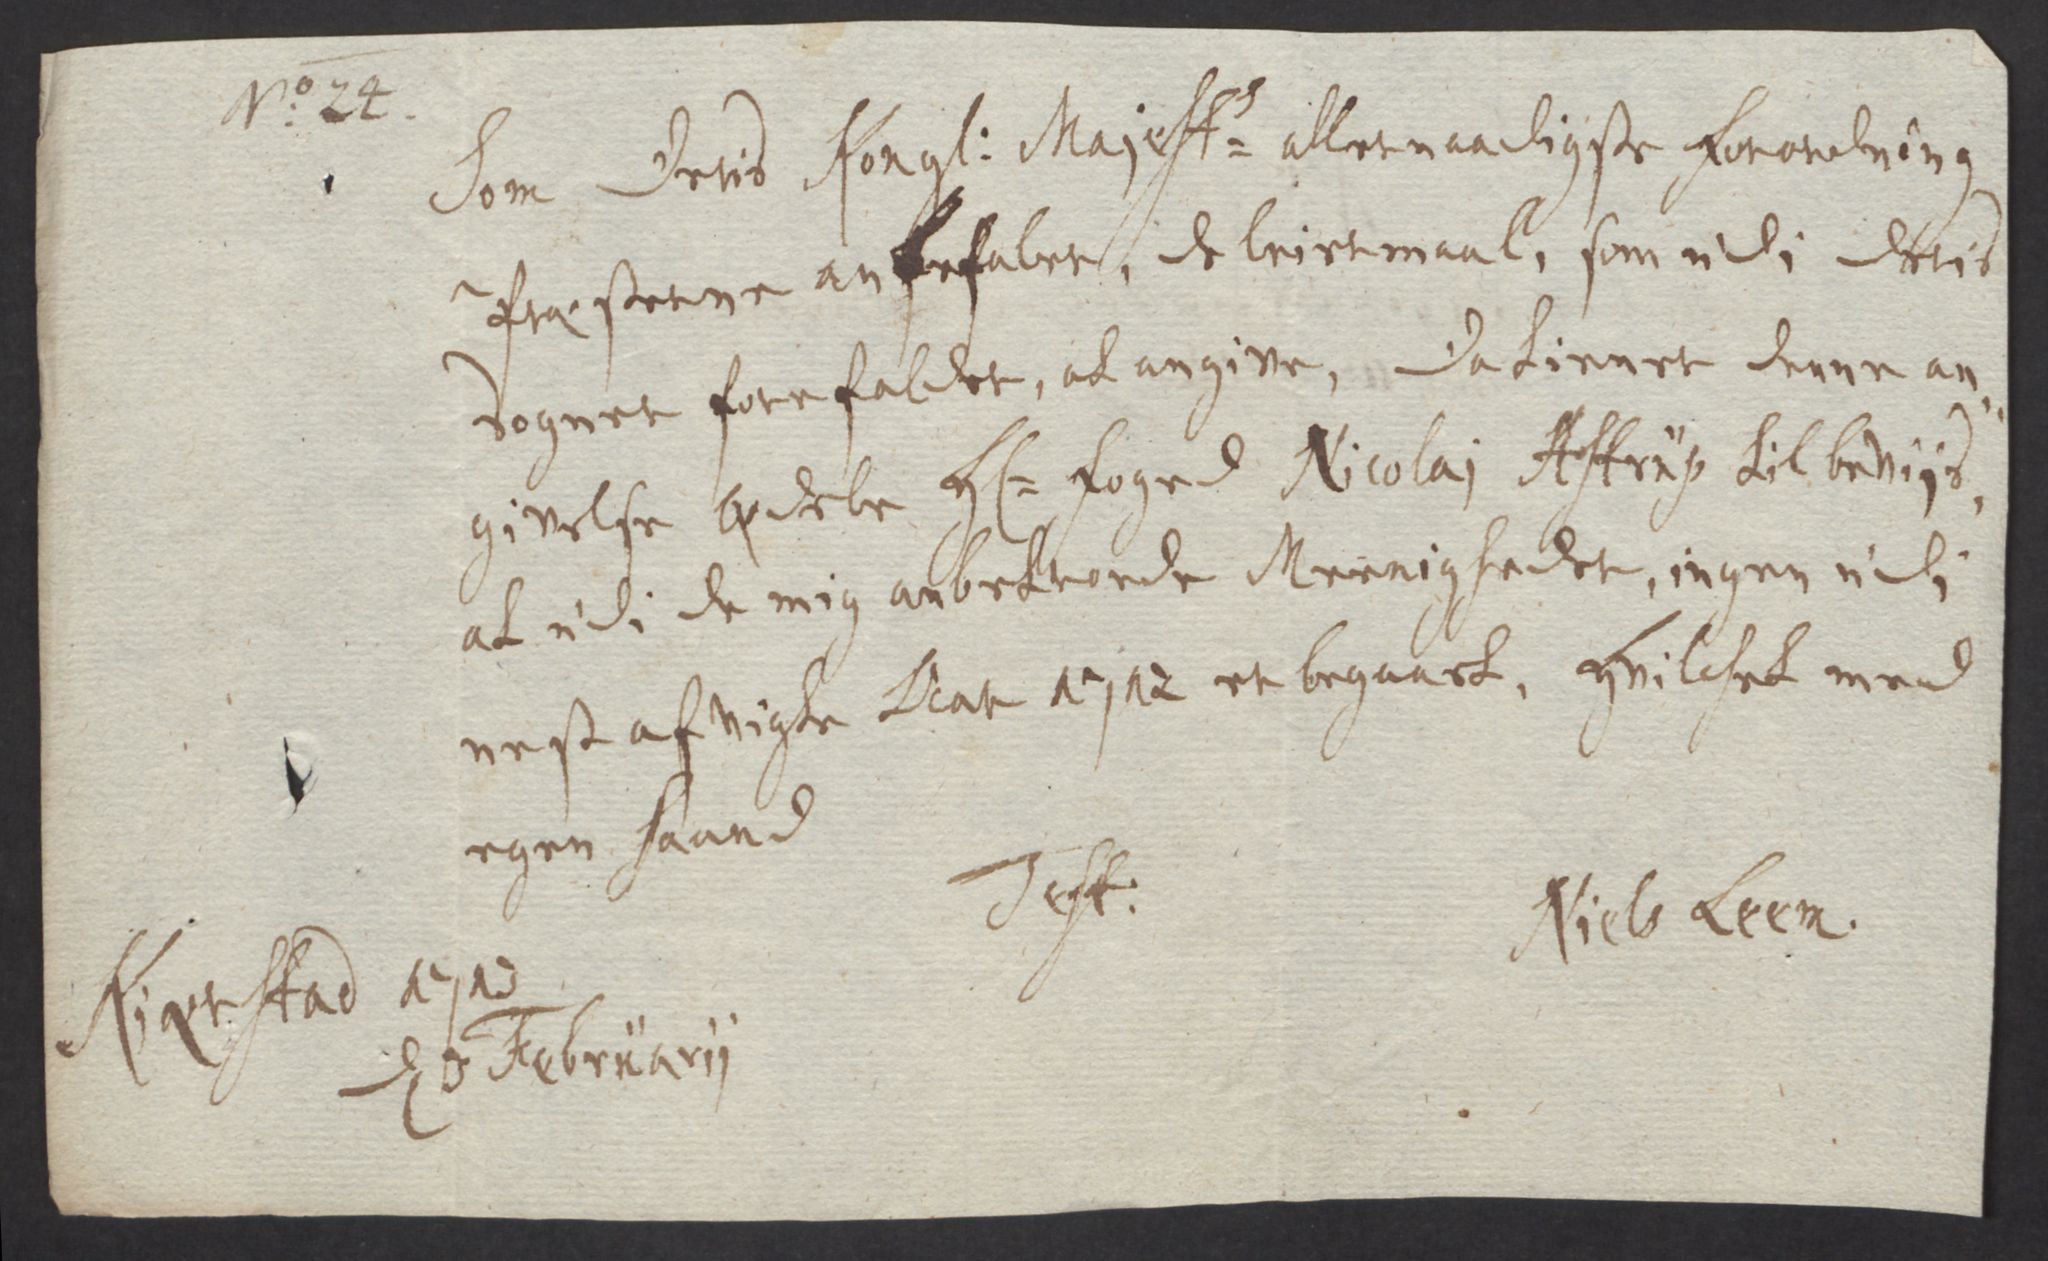 No: 24.
Som Deris Kongl: Majestts= allernaadigste forordning
Præsterne anbefaler, de leiermaal, som udi deris
Sogner forefalder, at angive, Da tiener denne an„
givelse ædele Hr= foged Nicolaj Astrüp til beviis,
at udi de mig anbetroede Meenigheder, ingen udi
nest afvigte Aar 1712 er begaaet, hvilchet med
egen haand
Test:
Niels Leem.
Kigestad 1713
d 3 Februarij